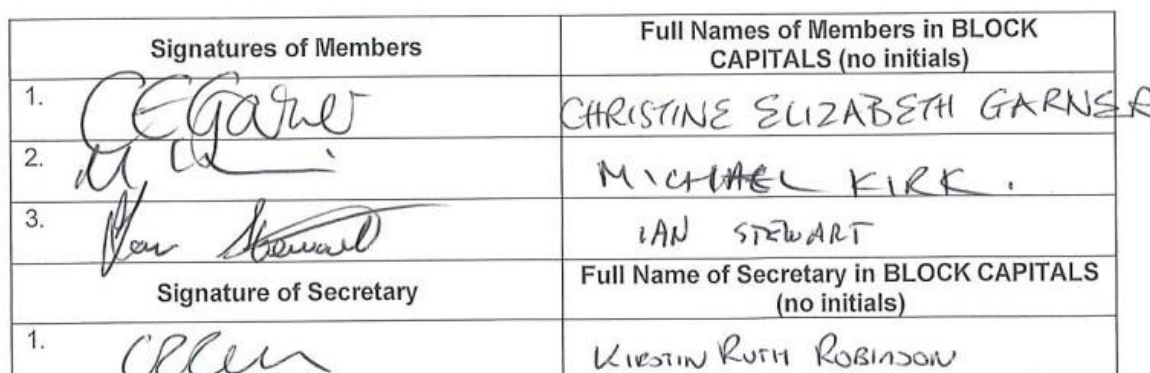 Signatures of Members
Full Names of Members in BLOCK
CAPITALS (no initials)
1.
CEGarner
CHRISTINE ELIZABETH GARNER
2.
MICHAEL KIRK.
3.
Ian Stewart
IAN STEWART
Signature of Secretary
Full Name of Secretary in BLOCK CAPITALS
(no initials)
1.
KIRSTIN RUTH ROBINSON